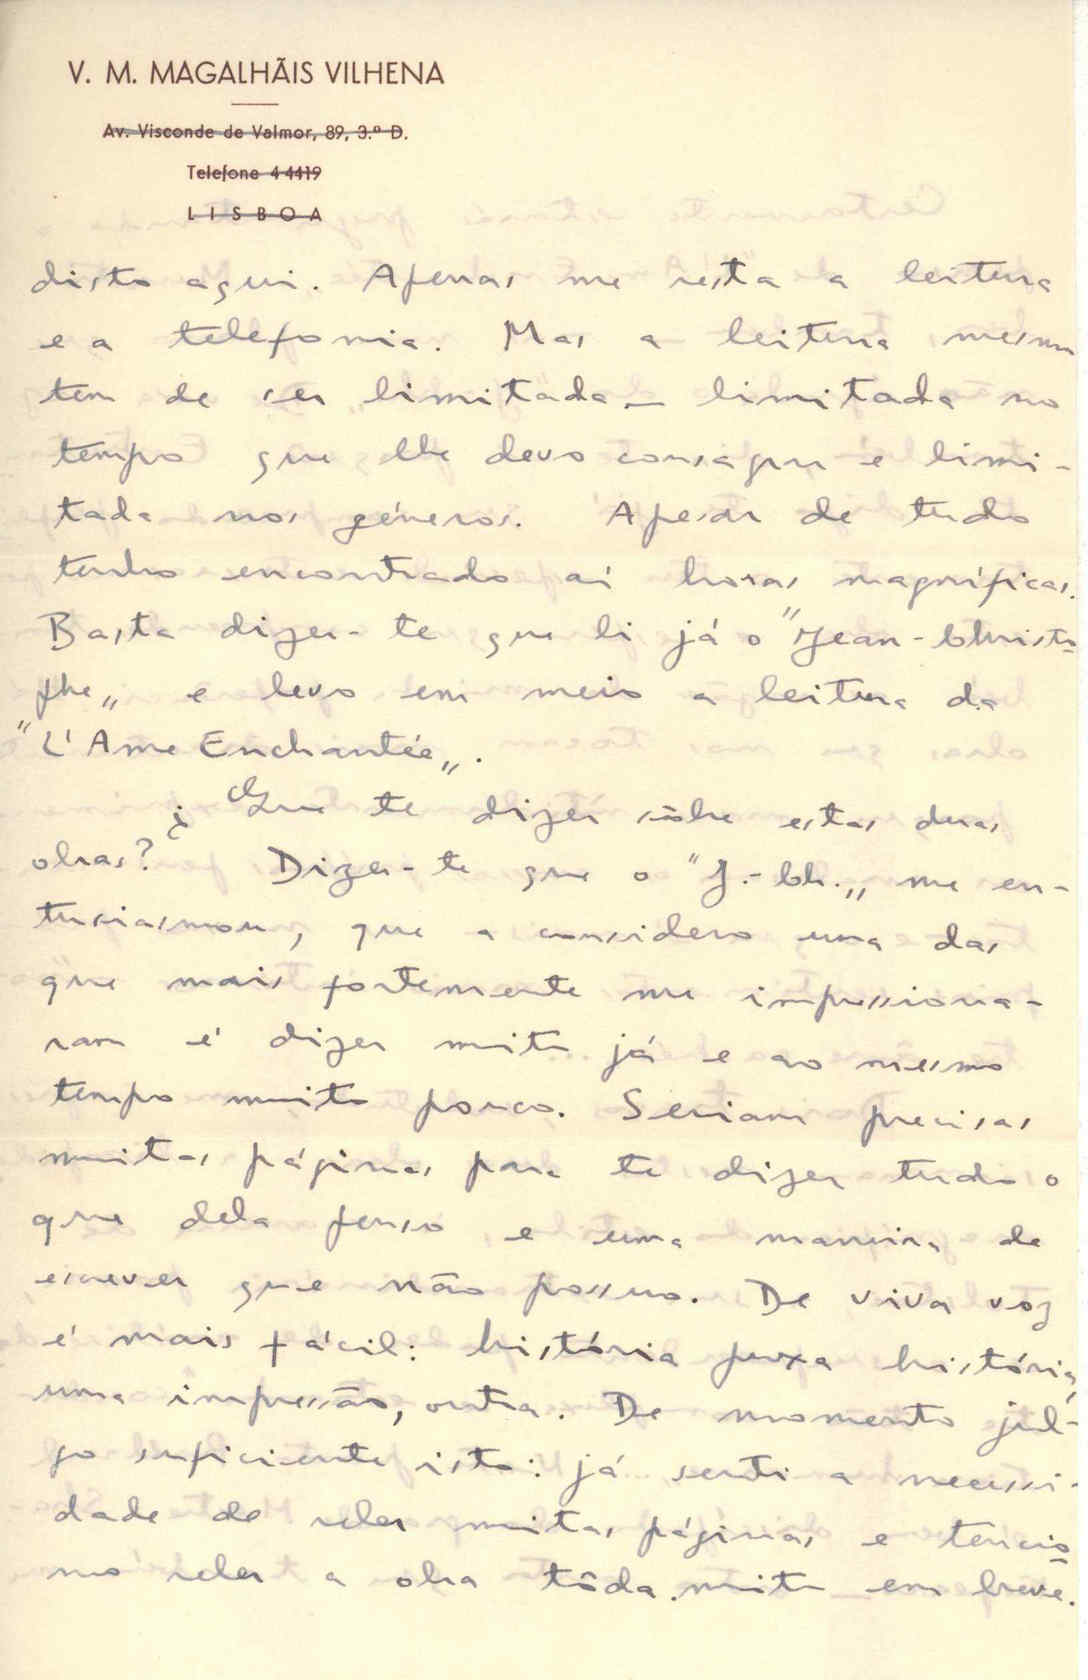 V. M. MAGALHÃIS VILHENA
Av. Visconde de Valmor, 89, 3.º D.
Telefone 4 4419
LISBOA
disto aqui. Apenas me resta a leitura
e a telefonia. Mas a leitura mesmo
tem de ser limitada — limitada no
tempo que lhe devo consagrar e limi-
tada nos géneros. Apesar de tudo
tenho encontrado aí horas magníficas.
Basta dizer-te que li já o "Jean-Christo-
phe„ e levo em meio a leitura da
"L'Ame Enchantée„.
¿ Que te dizer sôbre estas duas
obras? Dizer-te que o "J.-Ch.„ me en-
tusiasmou, que a considero uma das
que mais fortemente me impressiona-
ram é dizer muito já e ao mesmo
tempo muito pouco. Seriam precisas
muitas páginas para te dizer tudo o
que dela penso e uma maneira de
escrever que não possuo. De viva voz
é mais fácil: história puxa história,
uma impressão, outra. De momento jul-
go suficiente isto: já senti a necessi-
dade de reler muitas páginas e tencio-
no reler a obra tôda muito em breve.